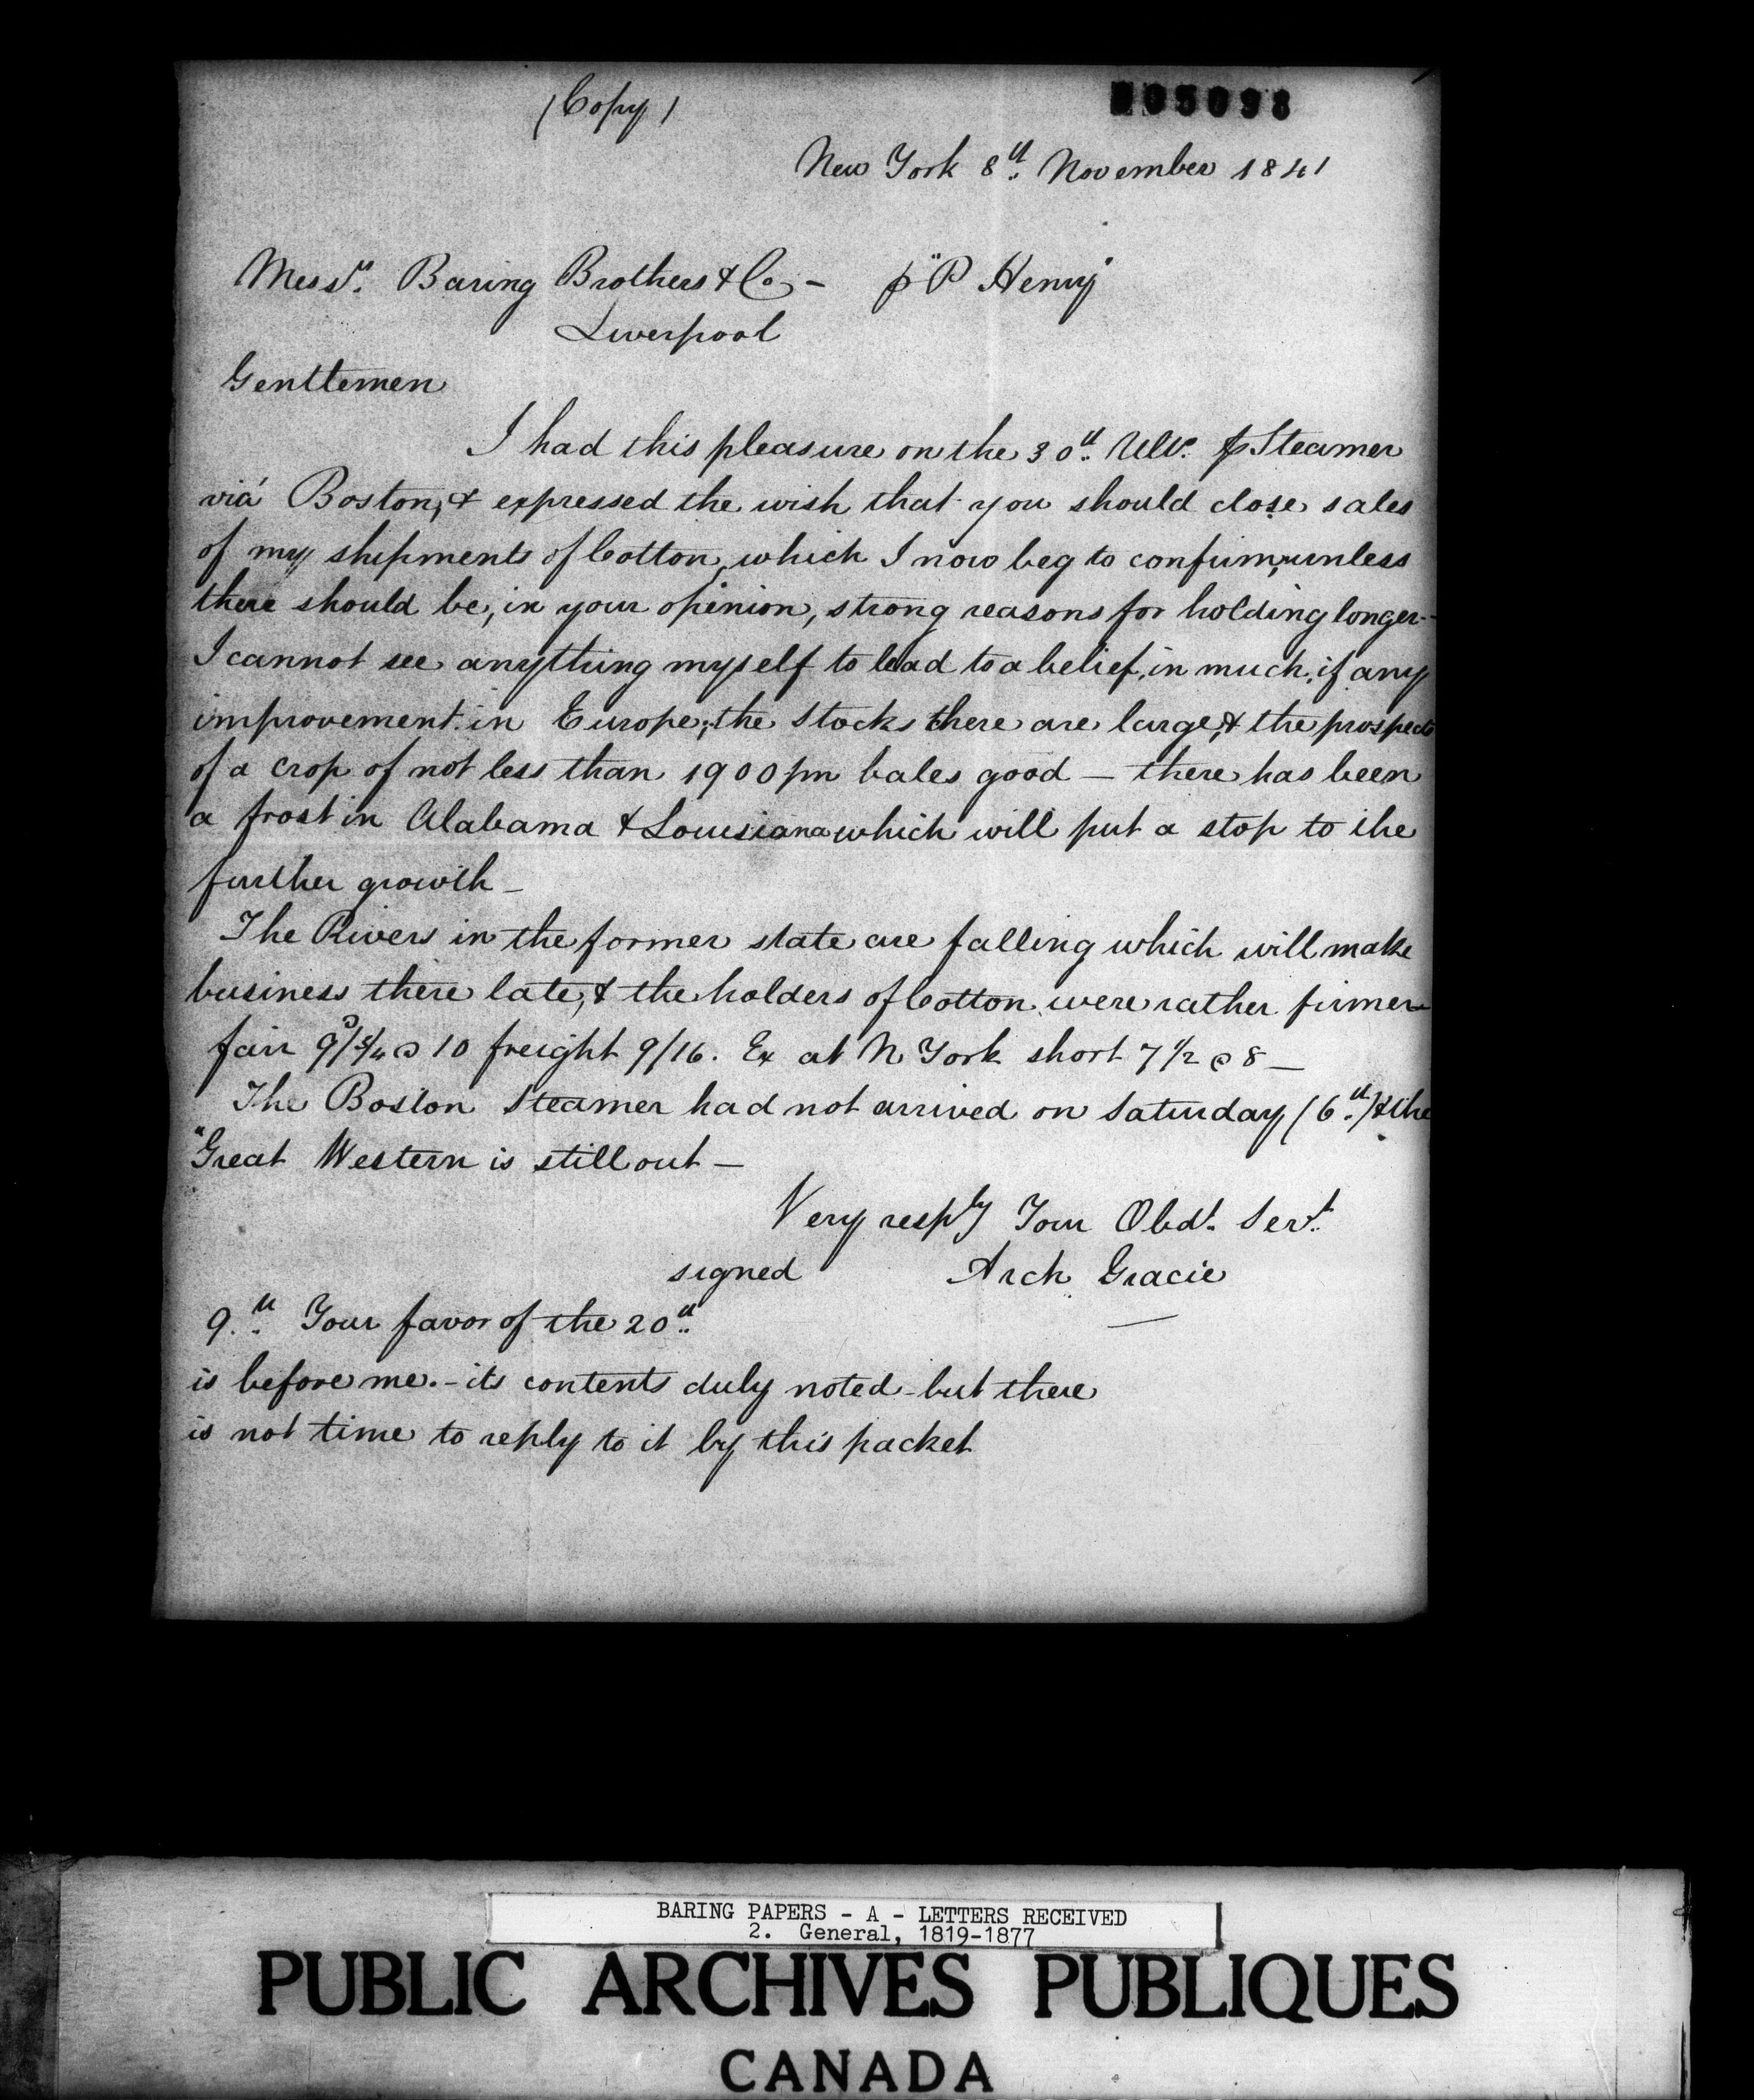 (Copy)
205098
New York 8th. November 1841
Messrs. Baring Brothers & Co - p "P Henry"
Liverpool
Gentlemen
I had this pleasure on the 30th. Ult. p Steamer
viá Boston, & expressed the wish that you should close sales
of my shipments of Cotton, which I now beg to confirm, unless
there should be, in your opinion, strong reasons for holding longer.-
I cannot see anything myself to lead to a belief, in much, if any
improvement in Europe; the Stocks there are large, & the prospects
of a crop of not less than 1900 bales good — there has been
a frost in Alabama & Louisiana which will put a stop to the
further growth —
The Rivers in the former state are falling which will make
business there late, & the holders of Cotton were rather firmer
fair 9 3/4 @ 10 freight 9/16. Ex at N York short 7 1/2 @ 8 —
The Boston Steamer had not arrived on Saturday (6th.) & the
"Great Western is still out —
Very resply Your Obdt. Servt.
signed Arch Gracie
9th. Your favor of the 20th.
is before me. - its contents duly noted - but there
is not time to reply to it by this packet
BARING PAPERS - A - LETTERS RECEIVED
2. General, 1819-1877
PUBLIC ARCHIVES PUBLIQUES
CANADA